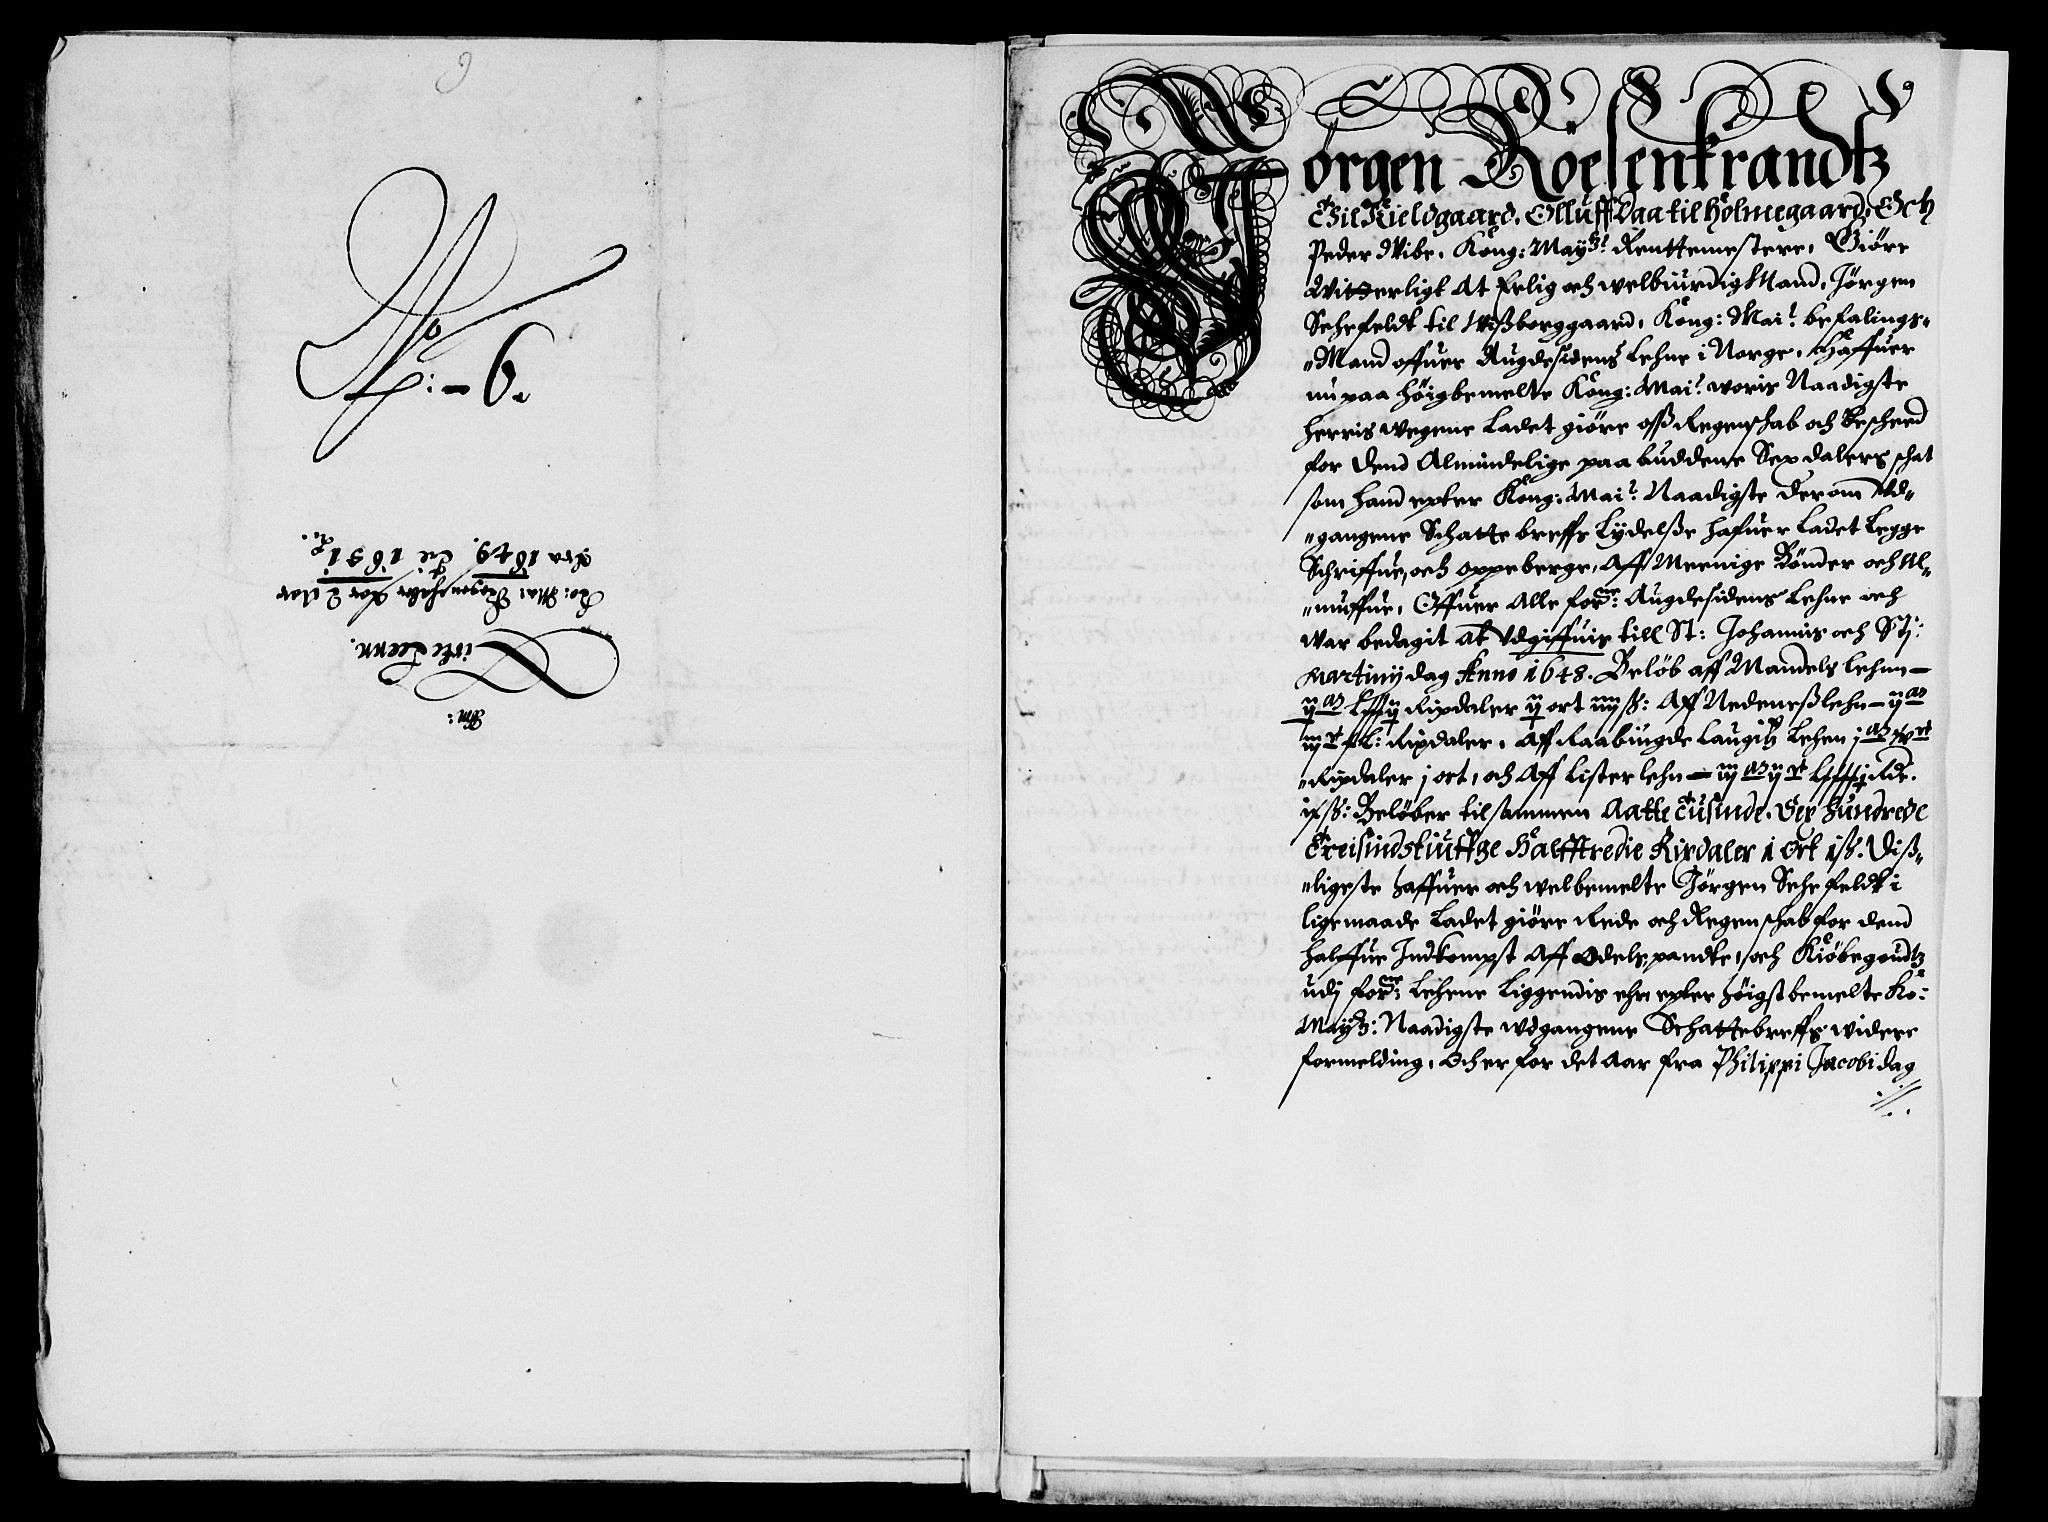 No
6.
Lister Leenn.
Ko: Ma: Regenschaber for 2 Aar
Fra 1649. til 1651
Jörgen Roesenkrandtz
Til Kieldgaard, Olluff Daa til Holmegaard, Och
Peder Wibe, Kong: Maytz: Renttemestere, Giöre
Witterligt At Erlig och welbiurdig Mand, Jörgen
Sehefeldt til Wißborggaard, Kong: Mai: befalings-
Mand offuer Augdesidens Lehne i Norge, Haffuer
nu paa Höigbemelte Kong: Mai: woris Naadigste
herris wegene Ladet giöre oß Regenschab och Bescheed
for Dend Almindelige paabuddene Sex dalers schat
som hand epter Kong: Mai: Naadigste derom Ud-
gangene Schatte breffs Lydelße hafuer Ladet Legge
Schriffue, och oppeberge, Aff Meenige Bönder och Al-
muffue, Offuer Alle forne: Augdesidens Lehne och
war bedagit at Udgiffuis till St: Johannis och St:
Martinij dag Anno 1648. Belöb aff Mandels Lehnn-
Rixdaler ij ort iiij ß: Aff Nedeneßlehn-
Rixdaler, Aff Raabüngde Laugitz Lehen
Rixdaler j ort, och Aff Lister lehn- Rdr.
ix ß: Belöber tilsammen Aatte Tusinde, Sex Hundrede
Treisindstiuffge Halfftredie Rixdaler 1 Ort 1 ß. Diß-
ligeste haffuer och welbemelte Jörgen Sehefeldt i
ligemaade Ladet giöre Rede och Regenschab for dend
halffue Indkompst Aff Odels, pandte, och Kiöbegoudtz
udj forne: Lehene Liggendis ehr epter höigstbemelte Ko:
Maytz: Naadigste wdgangene Schattebreffs widere
formelding, Och er for det Aar fra Philippi Jacobi dag